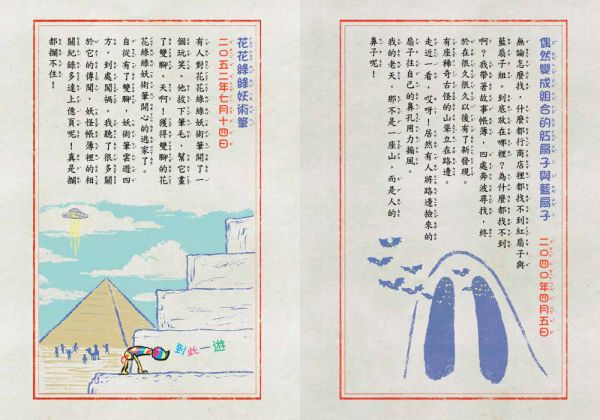 偶然變成組合的紅扇子與藍扇子
二〇四〇年四月五日
無論怎麼找，什麼都行商店裡都找不到紅扇子與
藍扇子組。到底放在哪裡？為什麼都找不到
啊？我帶著故事帳簿，四處奔波尋找，終
於在很久很久以後有了新發現。
有座稀奇古怪的山聳立在路邊。
走近一看，哎呀！居然有人將路邊撿來的
扇子往自己的鼻孔用力搧風。
我的老天，那不是一座山，而是人的
鼻子呢！
花花綠綠妖術筆
二〇五二年七月十四日
有人對花花綠綠妖術筆開了一
個玩笑。他拔下筆毛，幫它畫
了雙腳。天啊！獲得雙腳的花
花綠綠妖術筆開心的逃家了。
自從有了雙腳，妖術筆雲遊四
方，到處闖禍。我聽了很多關
於它的傳聞，妖怪帳簿裡的相
關紀錄多達上億頁呢！真是攔
都攔不住！
到此一遊